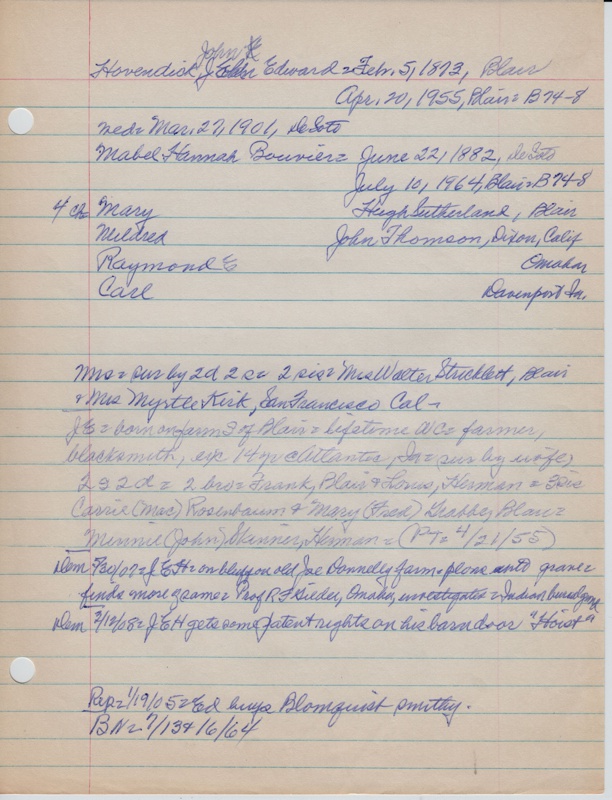 John
Hovendick, J Edward = Feb. 5, 1873, Blair
Apr. 20, 1955, Blair = B74-8
wed = Mar. 27, 1901, DeSoto
Mabel Hannah Bouvier = June 22, 1882, DeSoto
July 10, 1964, Blair = B74-8
4 ch = Mary Hugh Sutherland, Blair
Mildred John Thomson, Dixon, Calif
Raymond E Omaha
Carl Davenport Ia.
Mrs = sur by 2d 2 s = 2 sis = Mrs Walter Stricklett, Blair
& Mrs Myrtle Kirk, San Francisco Cal -
JE = born on farm S of Blair = lifetime WC = farmer,
blacksmith, exc 14 yr @ Atlantic, Ia = sur by wife,
2 s 2 d = 2 bro = Frank, Blair & Louis, Herman = 3 sis
Carrie (Mac) Rosenbaum & Mary (Fred) Grabbe, Blair =
Minnie (John) Skinner, Herman = (PT = 4/21/55)
Dem 7/30/07 = JEH = on bluff on old Joe Donnelly farm = plows into grave =
finds more & same = Prof R F Gilder, Omaha, investigates = Indian burial grnd
Dem 3/12/08 = JEH gets some patent rights on his barn door "Hoist"
Pap = 1/19/05 = Ed buys Blomquist smithy.
BN = 7/13 & 16/64